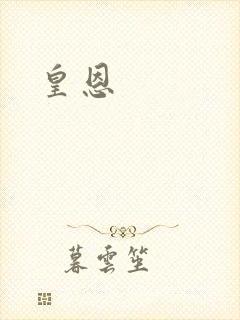 皇恩
暮雲笙